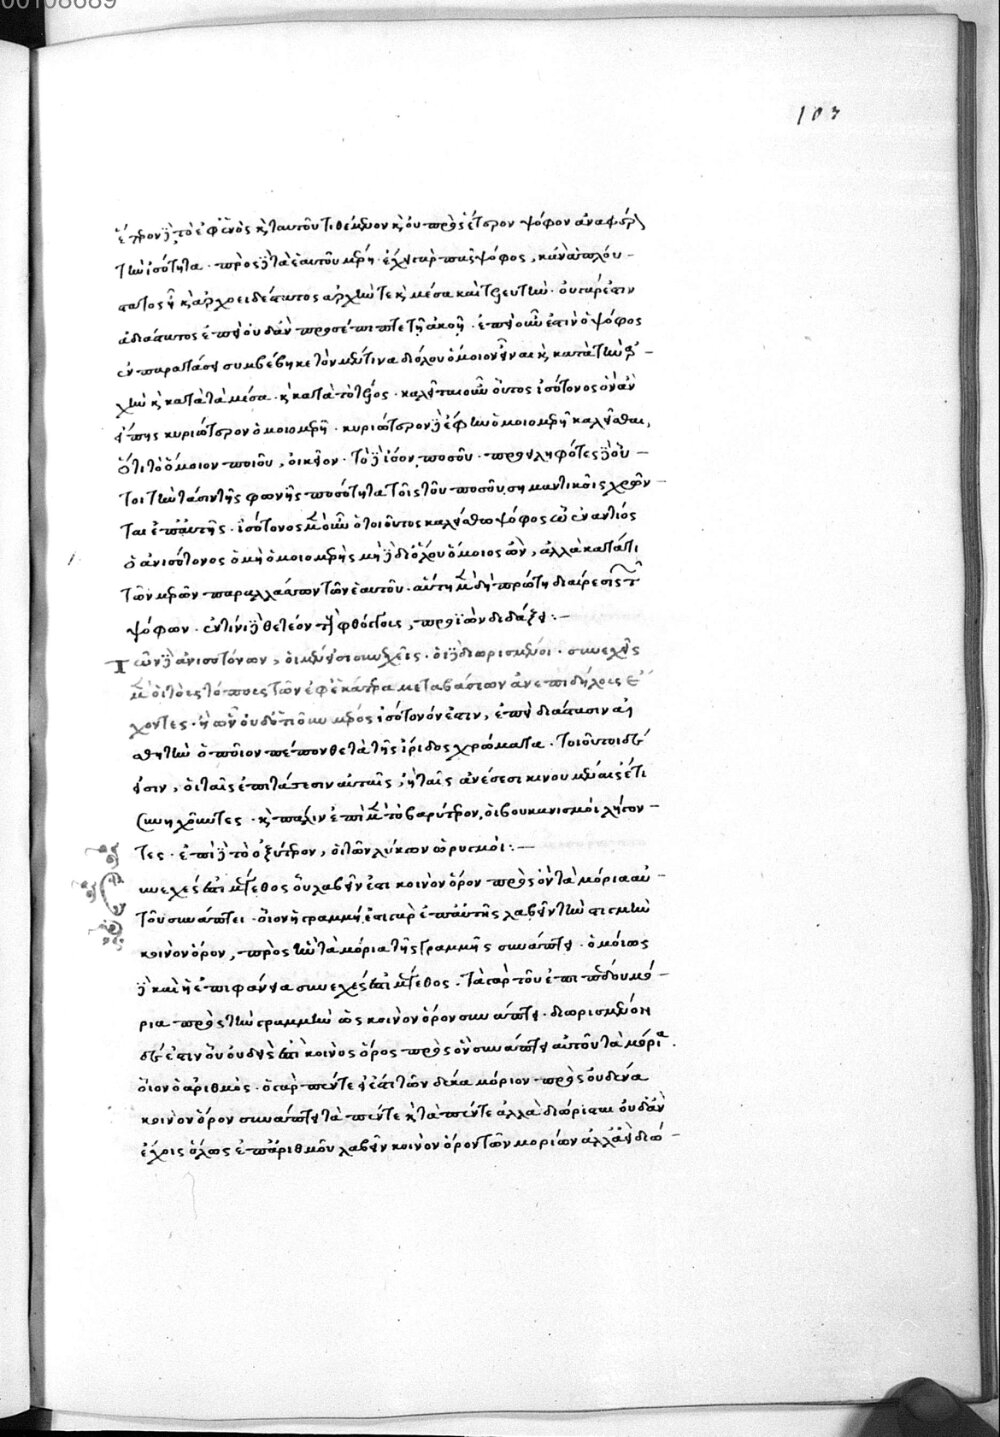 103
ἕτερον δὲ τὸ ἐφ' ἑνὸς καὶ ταυτοῦ τιθέμενον καὶ οὐ πρὸς ἕτερον ψόφον ἀναφέρει
τὴν ἰσότητα · πρὸς δὲ τὰ ἑαυτοῦ μέρη · ἔχει γὰρ πᾶς ψόφος, κἂν ἁπλού-
στατος ᾖ καὶ ἀρχοειδέστατος ἀρχήν τε καὶ μέσα καὶ τελευτήν · οὐ γάρ ἐστιν
ἀδιάστατος ἐπεὶ οὐδ' ἂν προσέπιπτε τῇ ἀκοῇ · ἐπεὶ οὖν ἐστιν ὁ ψόφος
ἐν παραστάσει συμβέβηκε τὸν μέν τινα δι' ὅλου ὅμοιον εἶναι καὶ κατὰ τὴν ἀρ-
χὴν καὶ κατὰ τὰ μέσα · καὶ κατὰ τὸ τέλος · καλεῖται οὖν οὗτος ἰσότονος ὃν ἄν
εἴπῃς κυριώτερον ὁμοιομερῆ · κυριώτερον δὲ ἔφην ὁμοιομερῆ καλεῖσθαι,
ὅτι τὸ ὅμοιον ποιοῦ, οἰκεῖον · τὸ δὲ ἴσον ποσοῦ · προειληφότες δὲ οὗ-
τοι τὴν τάσιν τῆς φωνῆς ποσότητα τοῖς τοῦ ποσοῦ σημαντικοῖς χρῶν-
ται ἐπ' αὐτῆς · ἰσότονος μὲν οὖν ὁ τοιοῦτος καλείσθω ψόφος ᾧ ἐναντίος
ὁ ἀνισότονος ὁ μὴ ὁμοιομερὴς μὴ δὲ δι' ὅλου ὅμοιος ὤν, ἀλλὰ κατά τι
τῶν μερῶν παραλλάσσων τῶν ἑαυτοῦ · αὕτη μὲν δὴ πρώτη διαίρεσις τῶν
ψόφων · ἐν τίνι δὲ θετέον τοῖς φθόγγοις, προϊὼν διδάξει :-
Τῶν δὲ ἀνισοτόνων, οἱ μέν εἰσι συνεχεῖς · οἱ δὲ διωρισμένοι · συνεχεῖς
μὲν οἱ τοὺς τόπους τῶν ἐφ' ἑκάτερα μεταβάσεων ἀνεπιδήλους ἔ-
χοντες · ἢ ὧν οὐδ' ὁτιοῦν μέρος ἰσότονόν ἐστιν, ἐπεὶ διάστασιν αἰ
σθητὴν ὁποῖον πέπονθε τὰ τῆς ἴριδος χρώματα · τοιοῦτοι δέ
εἰσιν, οἱ ταῖς ἐπιτάσεσιν αὐταῖς, ἢ ταῖς ἀνέσεσι κινουμέναις ἔτι
συνηχοῦντες · καὶ πάλιν ἐπὶ μὲν τὸ βαρύτερον, οἱ βουκανισμοὶ λήγον-
τες · ἐπὶ δὲ τὸ ὀξύτερον, οἱ τῶν λύκων ὠρυγμοί :-
συνεχές ἐστι μέγεθος οὗ λαβεῖν ἔστι κοινὸν ὅρον πρὸς ὃν τὰ μόρια αὐ-
τοῦ συνάπτει · οἷον ἡ γραμμή, ἔστι γὰρ ἐπ' αὐτῆς λαβεῖν τὴν στιγμὴν
κοινὸν ὅρον, πρὸς ἣν τὰ μόρια τῆς γραμμῆς συνάπτει · ὁμοίως
δὲ καὶ ἡ ἐπιφάνεια συνεχές ἐστι μέγεθος · τὰ γὰρ τοῦ ἐπιπέδου μό-
ρια πρὸς τὴν γραμμὴν ὡς κοινὸν ὅρον συνάπτει · διωρισμένον
δέ ἐστιν οὗ οὐδείς ἐστι κοινὸς ὅρος πρὸς ὃν συνάπτει αὐτοῦ τὰ μόρια.
οἷον ὁ ἀριθμός · ὁ γὰρ πέντε εἰ ἔστι τῶν δέκα μόριον πρὸς οὐδένα
κοινὸν ὅρον συνάπτει τὰ πέντε καὶ τὰ πέντε ἀλλὰ διώρισται οὐδ' ἂν
ἔχοις ὅλως ἐπ' ἀριθμοῦ λαβεῖν κοινὸν ὅρον τῶν μορίων ἀλλ' ἀεὶ διώ-